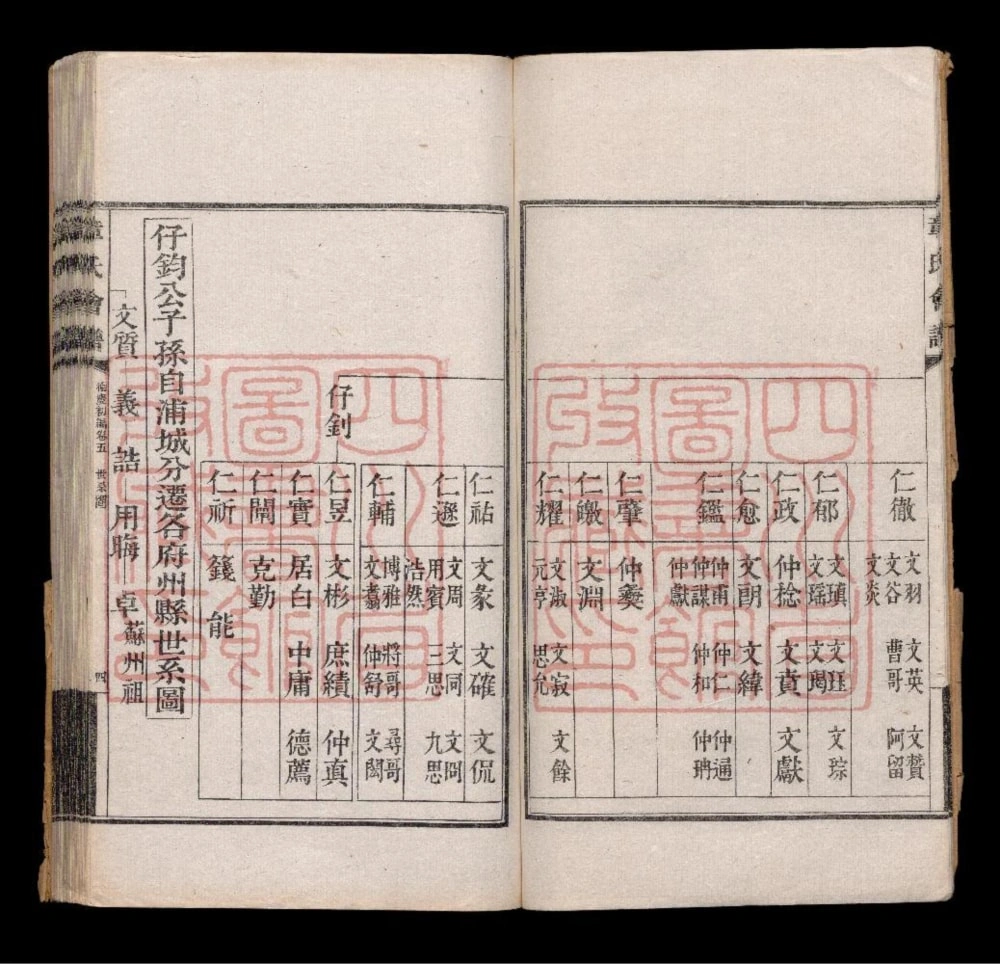 章氏會譜
仁徹
文羽 文英 文贊
文谷 曹哥 阿留
文炎
仁郁
文瑱 文珏 文琮
文瑶 文瑒
仁政
仲棯 文賁 文獻
仁愈
文朗 文緯
仁鑑
仲甫 仲仁 仲通
仲謀 仲和 仲聃
仲獻
仁肇
仲夔
仁皦
文淵
仁耀
文淑 文寂 文餘
元亨 思允
仔釗
仁祐
文彖 文確 文侃
仁遜
文周 文同 文阿
用賓 三思 九思
浩然
仁輔
博雅 將哥 尋哥
文翥 仲舒 文闊
仁昱
文彬 庶績 仲真
仁實
居白 中庸 德薦
仁閘
克勤
仁祈
籛 能
仔鈞公子孫自浦城分遷各府州縣世系圖
文質 義 誥 用晦 卓 蘇州祖
章氏會譜
卷五 世系圖
四
四川省圖書館收藏之